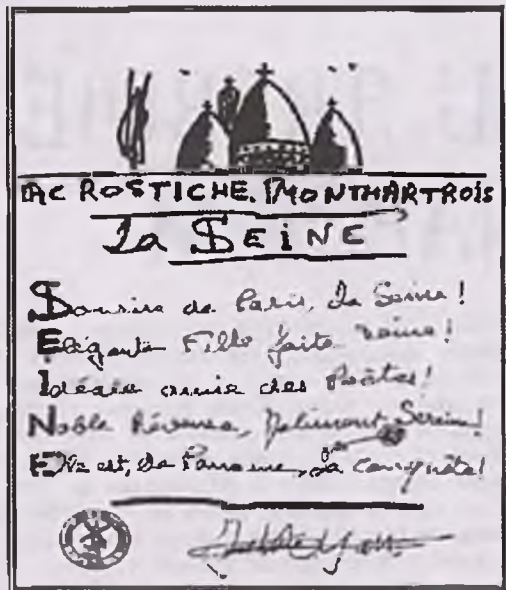 ACROSTICHE. MONTMARTROIS
La SEINE
Sourire de Paris, La Seine !
Elégante Fille faite reine !
Idéale amie des Poètes !
Noble Rêveuse, Serein !
Elle est, De, sa conquête !